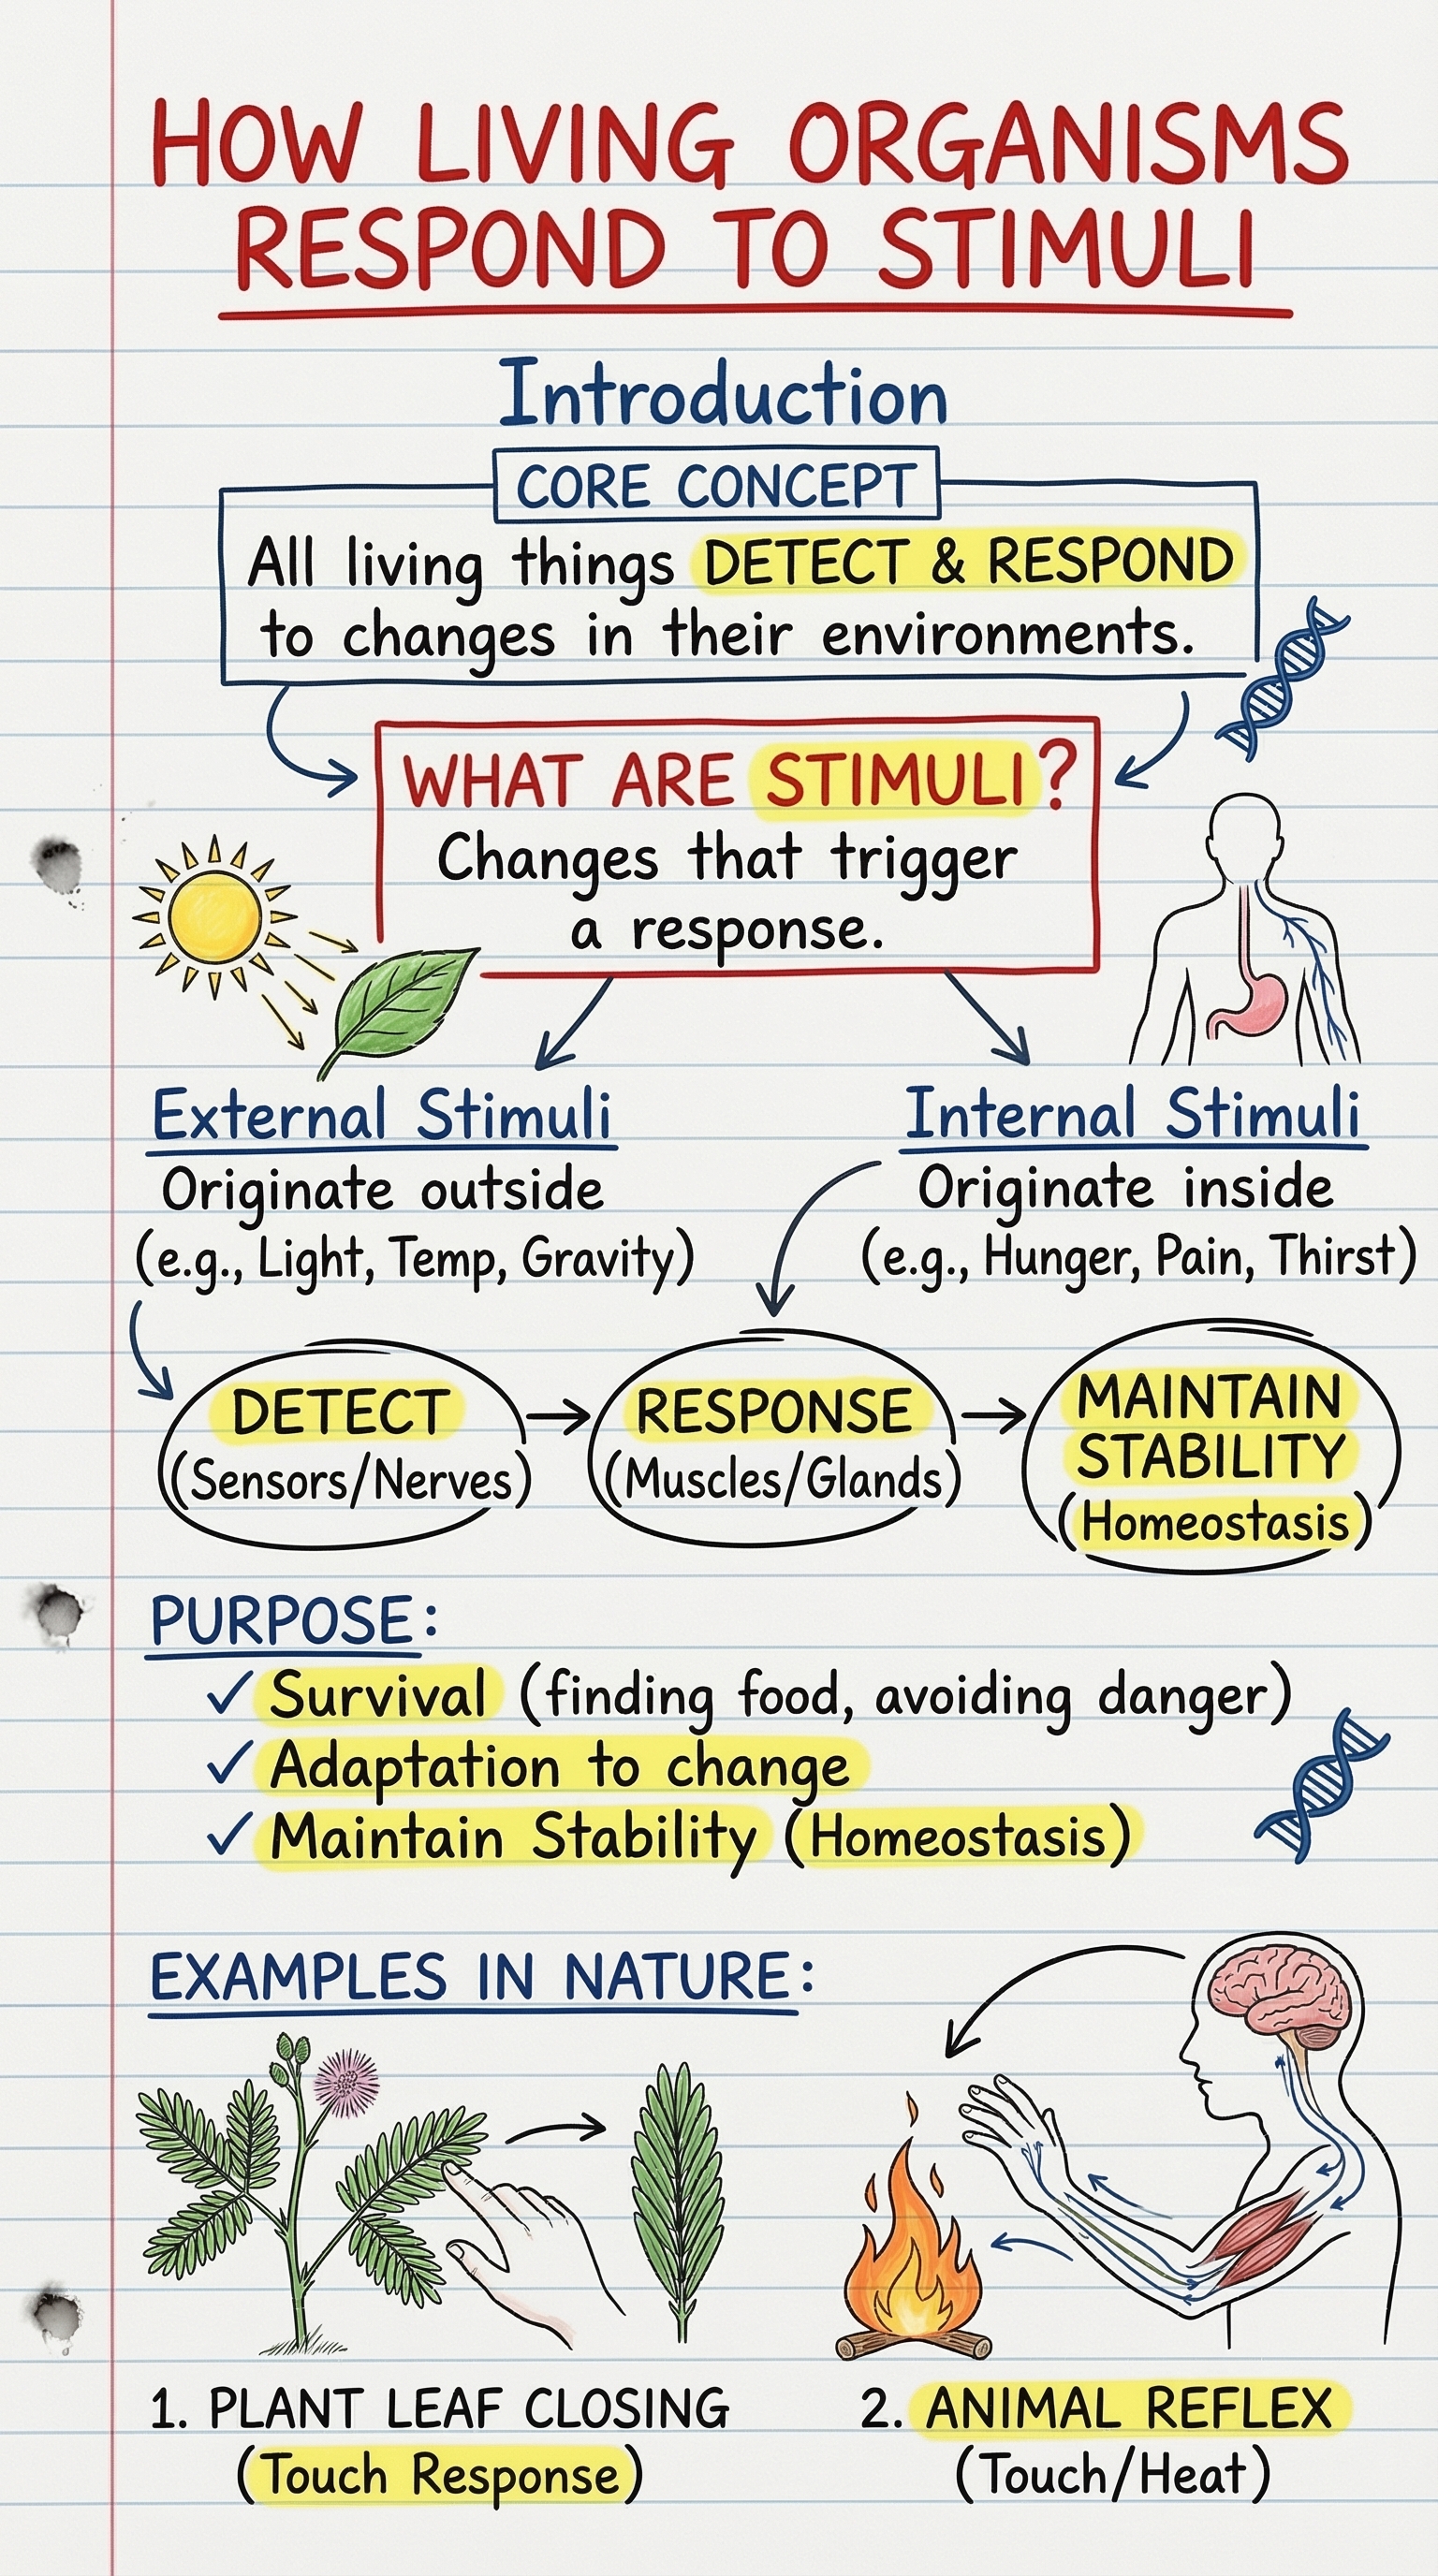 HOW LIVING ORGANISMS
RESPOND TO STIMULI
Introduction
CORE CONCEPT
All living things DETECT & RESPOND
to changes in their environments.
WHAT ARE STIMULI?
Changes that trigger
a response.
External Stimuli
Originate outside
(e.g., Light, Temp, Gravity)
Internal Stimuli
Originate inside
(e.g., Hunger, Pain, Thirst)
DETECT
(Sensors/Nerves)
RESPONSE
(Muscles/Glands)
MAINTAIN
STABILITY
(Homeostasis)
PURPOSE:
✓ Survival (finding food, avoiding danger)
✓ Adaptation to change
✓ Maintain Stability (Homeostasis)
EXAMPLES IN NATURE:
1. PLANT LEAF CLOSING
(Touch Response)
2. ANIMAL REFLEX
(Touch/Heat)